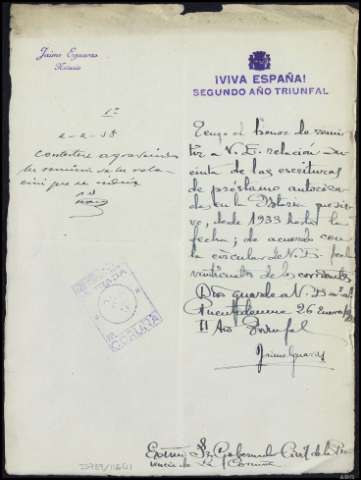 Jaime Eguaras
Notario
¡VIVA ESPAÑA!
SEGUNDO AÑO TRIUNFAL
1ª
2-2-38
Contestese agradeciendo
la remisión de la rela-
ción que se
Tengo el honor de remi-
tir a V.E. relación su-
cinta de las escrituras
de préstamo autoriza-
das en la Notaría que sir-
vo, desde 1933 hasta la
fecha; de acuerdo con
la circular de V.E. fecha
veinticuatro de los corrientes
Dios guarde a V.E. m. a.
Puentedeume 26 Enero
II Año Triunfal
Jaime Eguaras
CORUÑA
Excmo. Sr. Gobernador Civil de la Pro-
vincia de La Coruña